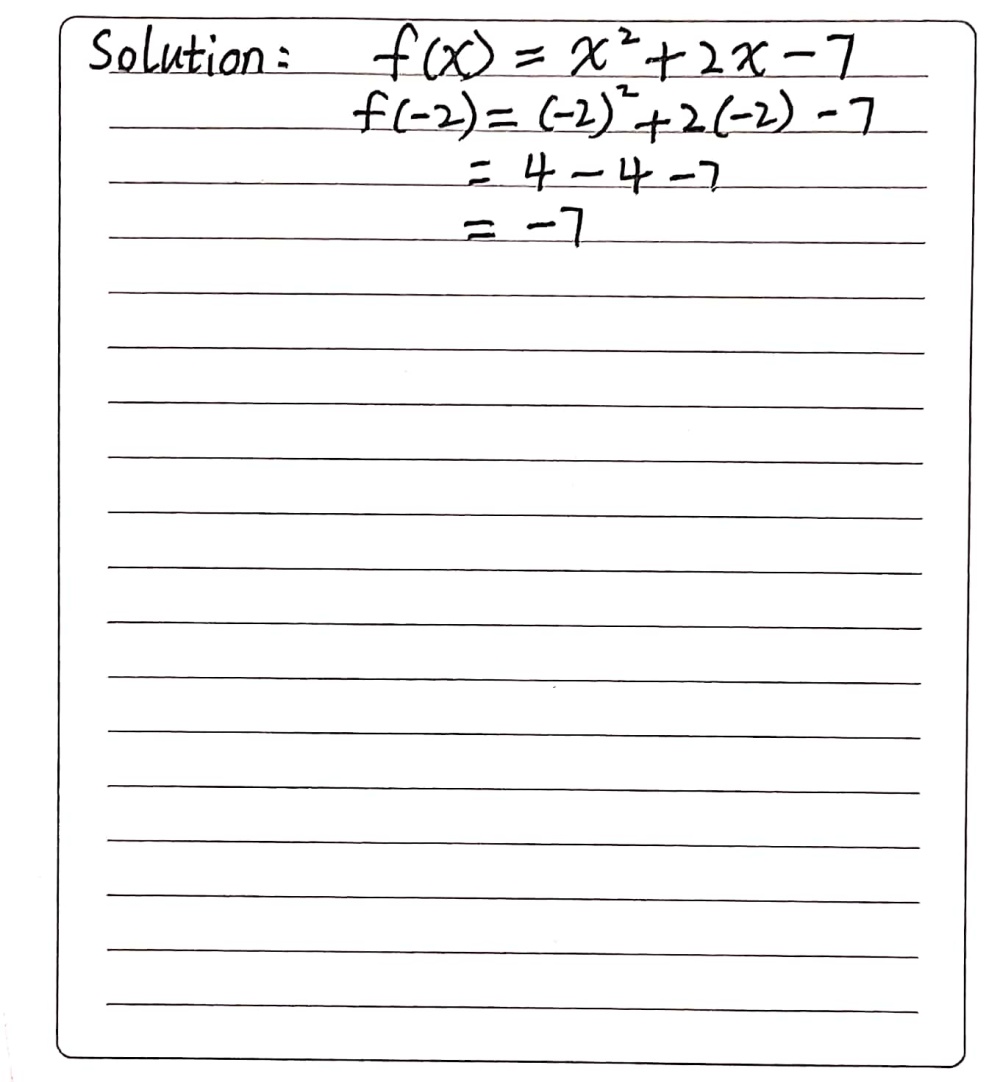 Solution: f(x) = x² + 2x - 7
f(-2) = (-2)² + 2(-2) - 7
= 4 - 4 - 7
= -7